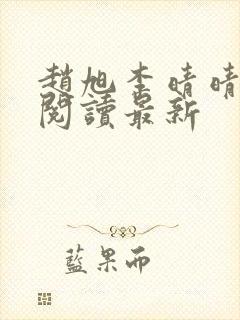 趙旭李晴晴
閱讀最新
藍果而